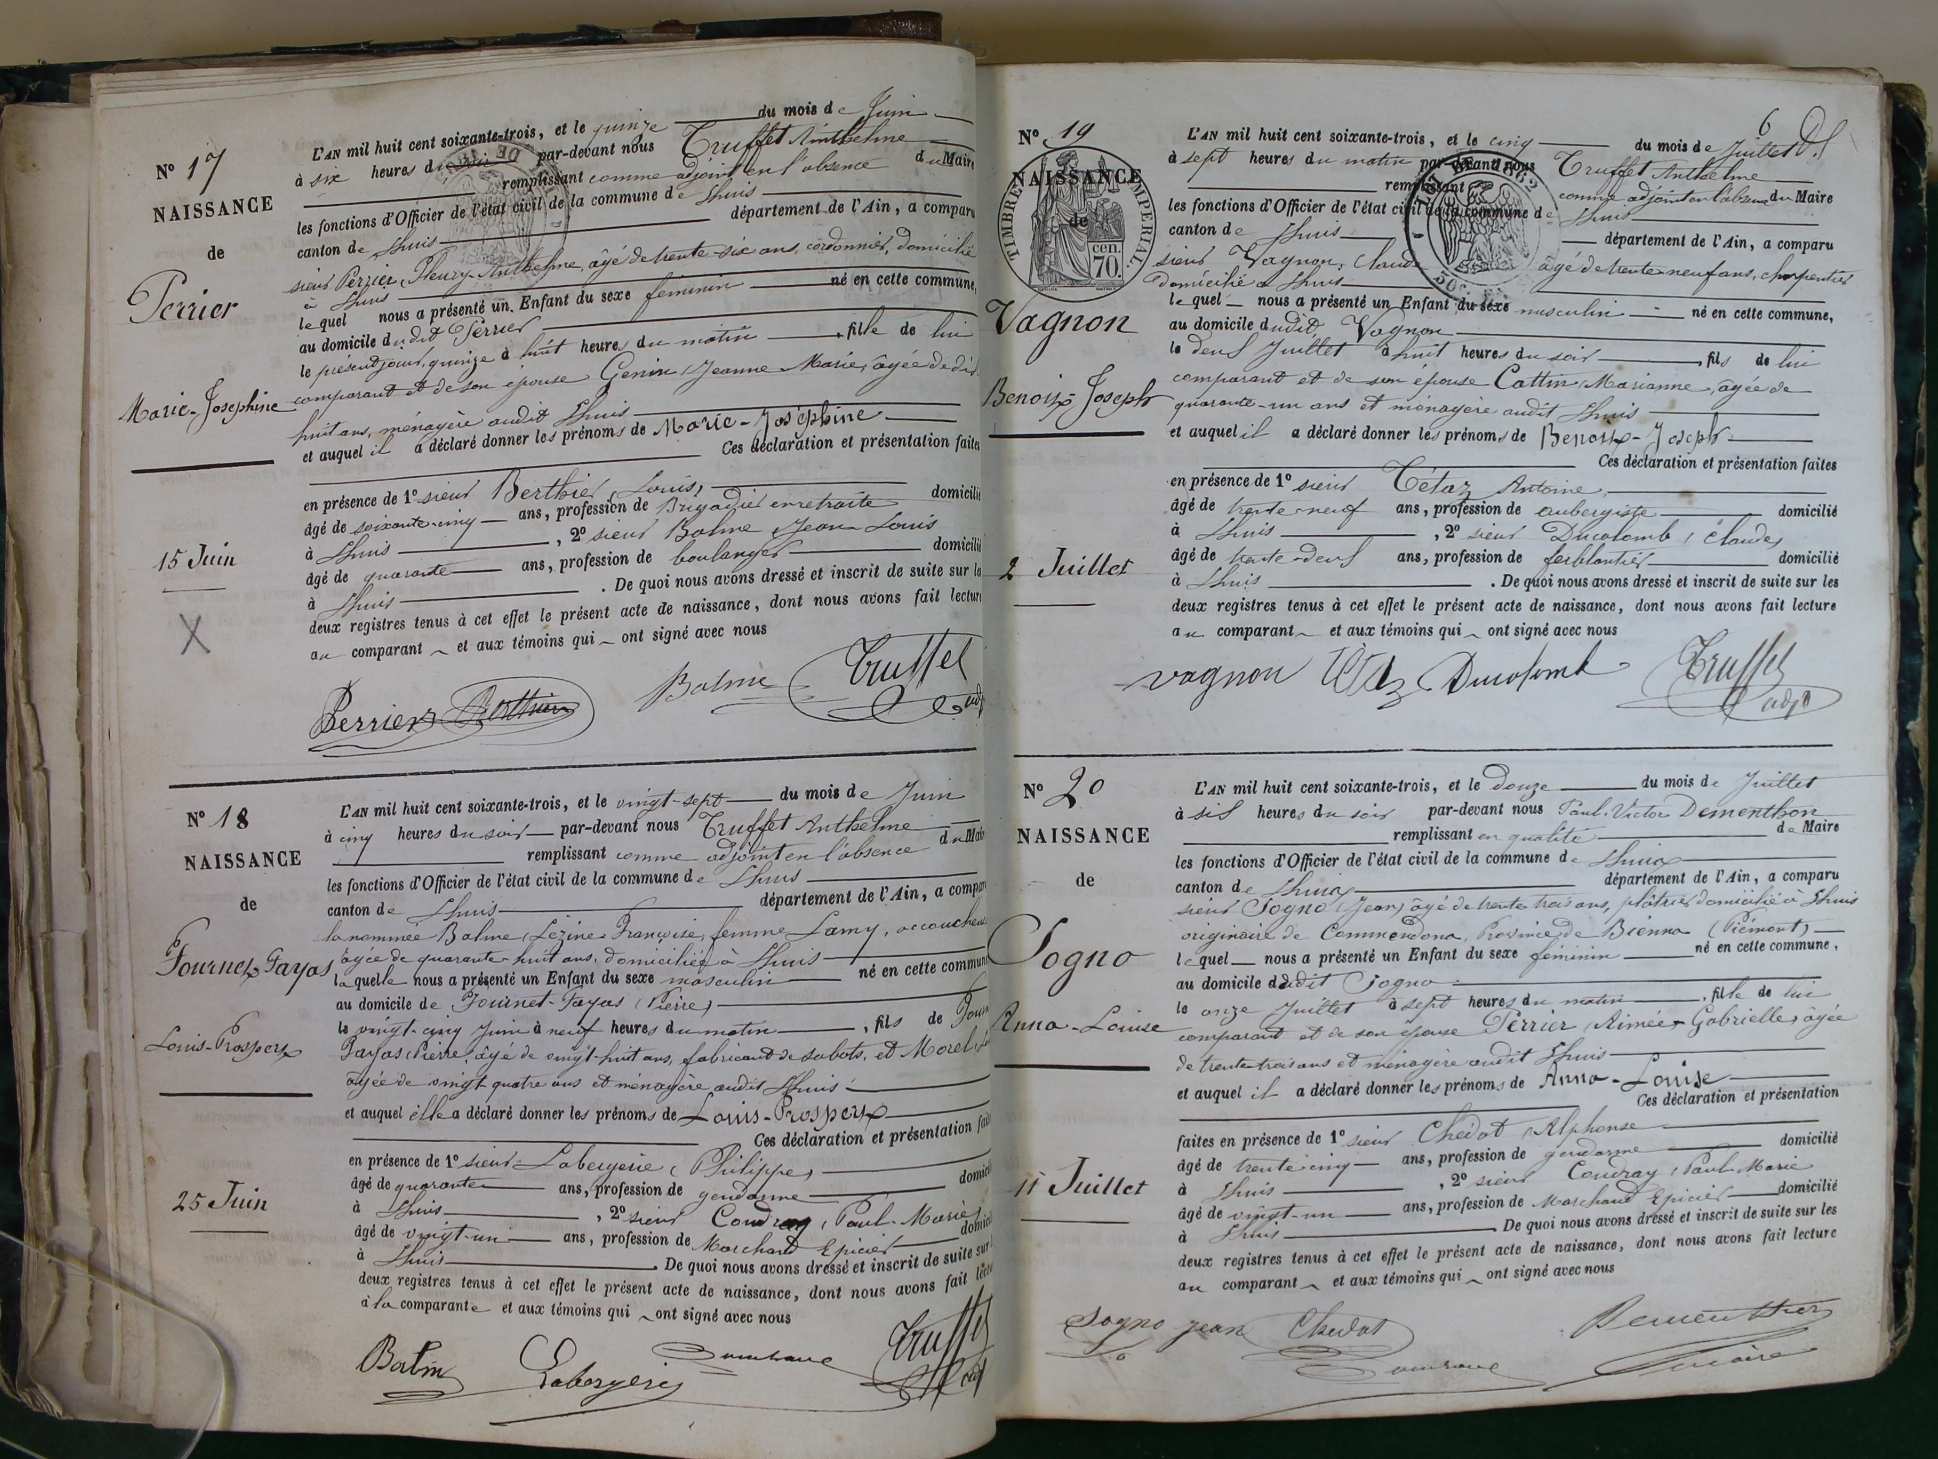 N° 17
NAISSANCE
de
Perrier
Marie-Josephine
15 Juin
X
L'AN mil huit cent soixante-trois, et le quinze du mois de Juin
à six heures du par-devant nous Truffet Anthelme
remplissant comme adjoint en l'absence du Maire
les fonctions d'Officier de l'état civil de la commune de Lhuis
canton de Lhuis département de l'Ain, a comparu
sieur Perrier, Fleury-Anthelme, âgé de trente-six ans, cordonnier, domicilié
à Lhuis
lequel nous a présenté un Enfant du sexe féminin né en cette commune,
au domicile dudit Perrier
le présent jour, quinze à huit heures du matin, fille de lui
comparant et de son épouse Genin, Jeanne Marie, âgée de dix
huit ans, ménagère audit Lhuis
et auquel il a déclaré donner les prénoms de Marie-Joséphine
Ces déclaration et présentation faites
en présence de 1° sieur Berthier, Louis, domicilié
âgé de soixante-cinq ans, profession de Brigadier en retraite
à Lhuis, 2° sieur Balme Jean-Louis
âgé de quarante ans, profession de boulanger domicilié
à Lhuis. De quoi nous avons dressé et inscrit de suite sur les
deux registres tenus à cet effet le présent acte de naissance, dont nous avons fait lecture
au comparant et aux témoins qui ont signé avec nous
Perrier Berthier Balme Truffet adj
N° 18
NAISSANCE
de
Fournet-Fayas
Louis-Prosper
25 Juin
L'AN mil huit cent soixante-trois, et le vingt-sept du mois de Juin
à cinq heures du soir par-devant nous Truffet Anthelme
remplissant comme adjoint en l'absence du Maire
les fonctions d'Officier de l'état civil de la commune de Lhuis
canton de Lhuis département de l'Ain, a comparu
la nommée Balme, Lézine Françoise, femme Lamy, accoucheuse
âgée de quarante huit ans, domiciliée à Lhuis
laquelle nous a présenté un Enfant du sexe masculin né en cette commune
au domicile de Fournet-Fayas (Pierre)
le vingt-cinq Juin à neuf heures du matin, fils de Fournet
Fayas, Pierre, âgé de vingt-huit ans, fabricant de sabots, et Morel
âgée de vingt quatre ans et ménagère audit Lhuis
et auquel elle a déclaré donner les prénoms de Louis-Prosper
Ces déclaration et présentation faites
en présence de 1° sieur Labergerie (Philippe) domicilié
âgé de quarante ans, profession de gendarme
à Lhuis, 2° sieur Coudray, Paul-Marie
âgé de vingt-un ans, profession de Marchand Epicier domicilié
à Lhuis. De quoi nous avons dressé et inscrit de suite sur
deux registres tenus à cet effet le présent acte de naissance, dont nous avons fait lecture
à la comparante et aux témoins qui ont signé avec nous
Balm Labergerie Truffet adj
6
N° 19
NAISSANCE
de
TIMBRE IMPERIAL
70 cen.
Vagnon
Benoix-Joseph
2 Juillet
L'AN mil huit cent soixante-trois, et le cinq du mois de Juillet
à sept heures du matin par-devant nous Truffet Anthelme
remplissant comme adjoint en l'absence du Maire
les fonctions d'Officier de l'état civil de la commune de Lhuis
canton de Lhuis département de l'Ain, a comparu
sieur Vagnon, Claude âgé de trente-neuf ans, charpentier
domicilié à Lhuis
lequel nous a présenté un Enfant du sexe masculin né en cette commune,
au domicile dudit Vagnon
le deux Juillet à huit heures du soir, fils de lui
comparant et de son épouse Cattin, Marianne, âgée de
quarante-un ans et ménagère audit Lhuis
et auquel il a déclaré donner les prénoms de Benoix-Joseph
Ces déclaration et présentation faites
en présence de 1° sieur Tétaz Antoine,
âgé de trente-neuf ans, profession de aubergiste domicilié
à Lhuis, 2° sieur Ducolomb, Claude,
âgé de trente-deux ans, profession de ferblantier domicilié
à Lhuis. De quoi nous avons dressé et inscrit de suite sur les
deux registres tenus à cet effet le présent acte de naissance, dont nous avons fait lecture
au comparant et aux témoins qui ont signé avec nous
vagnon Tétaz Ducolomb Truffet adj
N° 20
NAISSANCE
de
Sogno
Anna-Louise
11 Juillet
L'AN mil huit cent soixante-trois, et le douze du mois de Juillet
à six heures du soir par-devant nous Paul-Victor Dementhon
remplissant en qualité de Maire
les fonctions d'Officier de l'état civil de la commune de Lhuis
canton de Lhuis département de l'Ain, a comparu
sieur Sogno (Jean) âgé de trente trois ans, plâtrier domicilié à Lhuis
originaire de Commendona, Province de Bienna (Piémont)
lequel nous a présenté un Enfant du sexe féminin né en cette commune,
au domicile dudit Sogno
le onze Juillet à sept heures du matin, fille de lui
comparant et de son épouse Perrier, Aimée-Gabrielle, âgée
de trente-trois ans et ménagère audit Lhuis
et auquel il a déclaré donner les prénoms de Anna-Louise
Ces déclaration et présentation
faites en présence de 1° sieur Chédot, Alphonse
âgé de trente-cinq ans, profession de gendarme domicilié
à Lhuis, 2° sieur Coudray, Paul-Marie
âgé de vingt-un ans, profession de Marchand Epicier domicilié
à Lhuis. De quoi nous avons dressé et inscrit de suite sur les
deux registres tenus à cet effet le présent acte de naissance, dont nous avons fait lecture
au comparant et aux témoins qui ont signé avec nous
Sogno jean Chedot Dementhon
maire